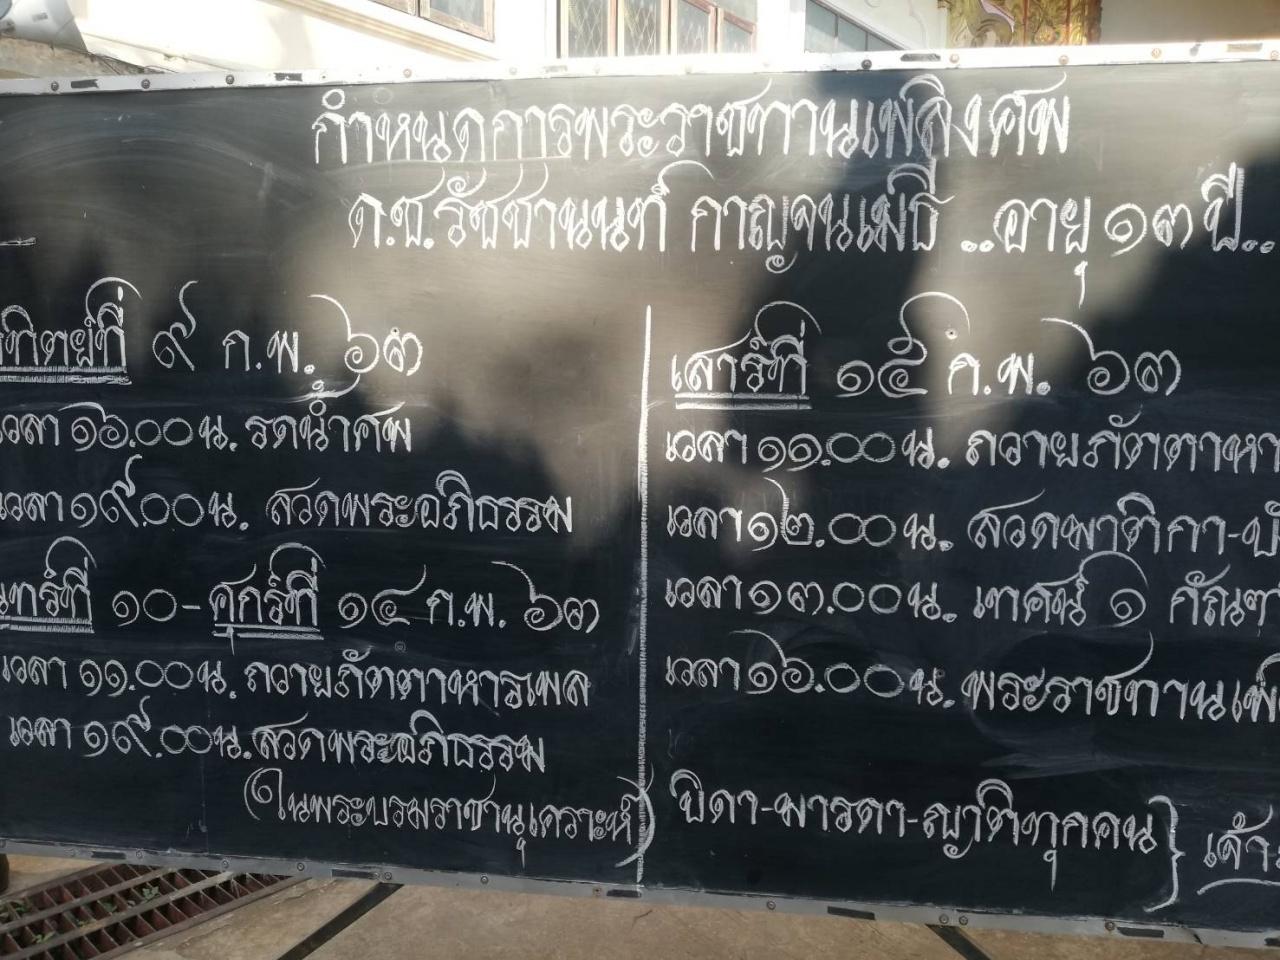 กำหนดการพระราชทานเพลิงศพ
ด.ช.รัชชานนท์ กาญจนเมธี ..อายุ ๑๓ ปี..
ทิตย์ที่ ๙ ก.พ. ๖๓
เวลา ๑๖.๐๐ น. รดน้ำศพ
เวลา ๑๙.๐๐ น. สวดพระอภิธรรม
นทร์ที่ ๑๐ - ศุกร์ที่ ๑๔ ก.พ. ๖๓
เวลา ๑๑.๐๐ น. ถวายภัตตาหารเพล
เวลา ๑๙.๐๐ น. สวดพระอภิธรรม
(ในพระบรมราชานุเคราะห์)
เสาร์ที่ ๑๕ ก.พ. ๖๓
เวลา ๑๑.๐๐ น. ถวายภัตตาหา
เวลา ๑๒.๐๐ น. สวดมาติกา-บั
เวลา ๑๓.๐๐ น. เทศน์ ๑ กัณฑ
เวลา ๑๖.๐๐ น. พระราชทานเพ
บิดา-มารดา-ญาติทุกคน }